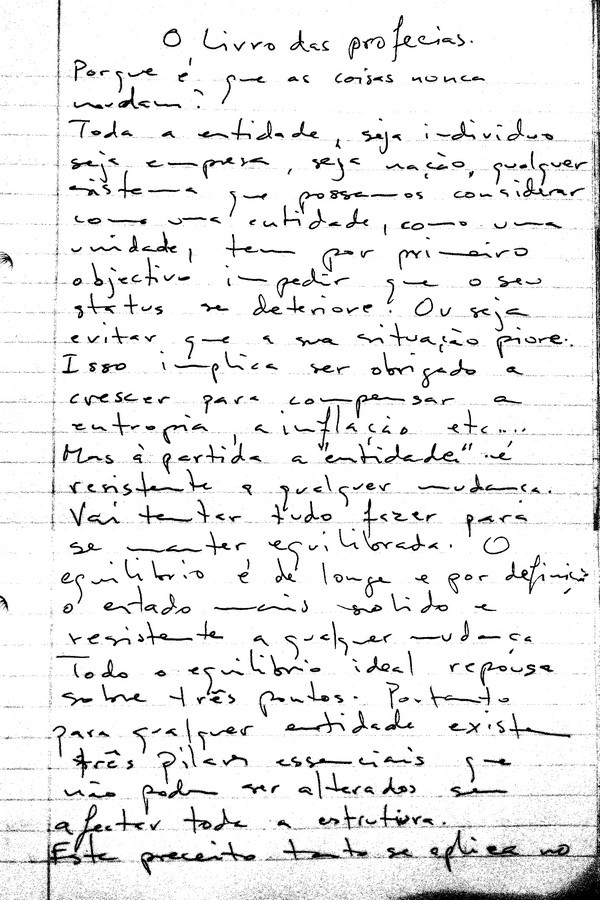 O Livro das profecias.
Porque é que as coisas nunca
mudam?
Toda a entidade, seja individuo
seja empresa, seja nação, qualquer
sistema que possamos considerar
como uma entidade, como uma
unidade, tem por primeiro
objectivo impedir que o seu
status se deteriore. Ou seja
evitar que a sua situação piore.
Isso implica ser obrigado a
crescer para compensar a
entropia, a inflação etc....
Mas à partida a "entidade" é
resistente a qualquer mudança.
Vai tentar tudo fazer para
se manter equilibrada. O
equilibrio é de longe e por definição
o estado mais solido e
resistente a qualquer mudança
Todo o equilibrio ideal repousa
sobre três pontos. Portanto
para qualquer entidade existem
três pilares essenciais que
não podem ser alterados sem
afectar toda a estrutura.
Este preceito tanto se aplica no